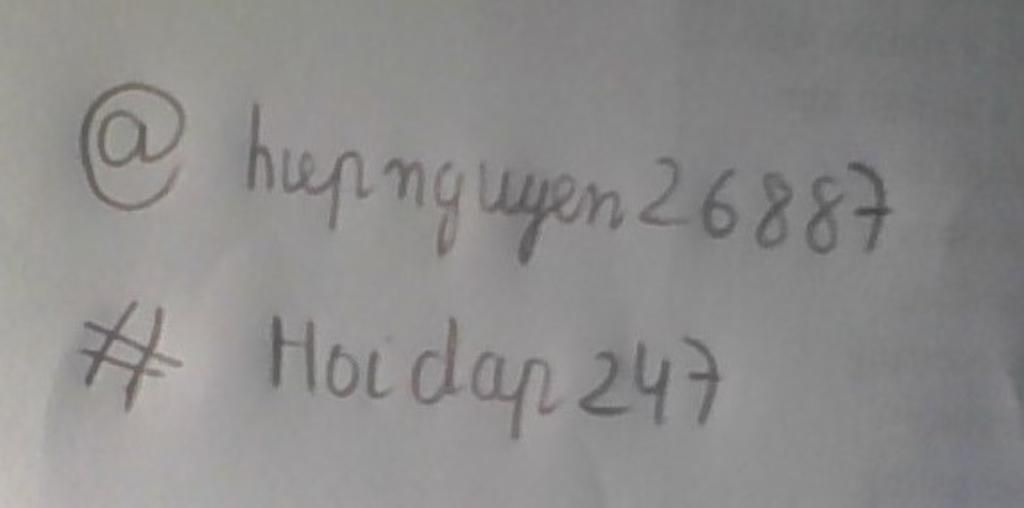 @ hiepnguyen26887
# Hoidap247